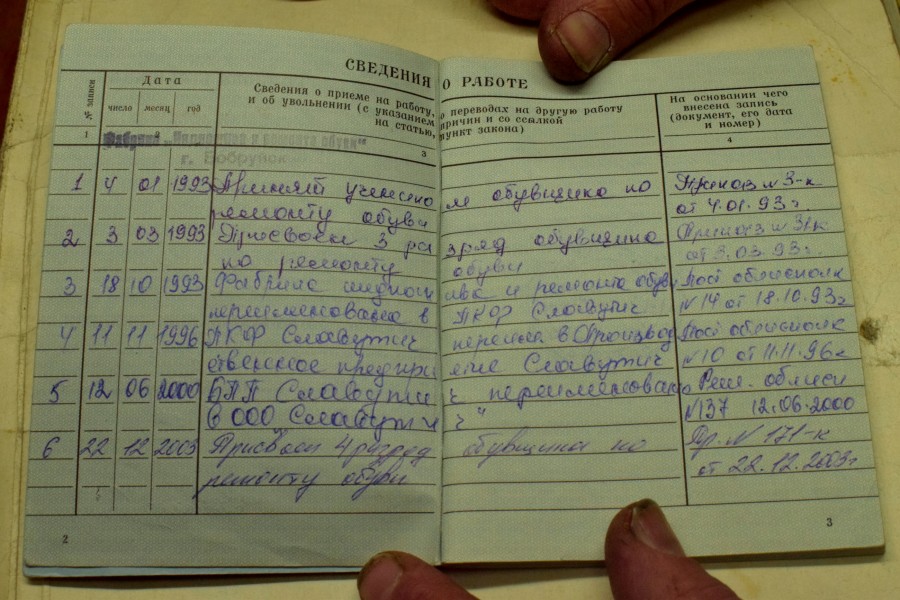 СВЕДЕНИЯ О РАБОТЕ
№ записи
Дата
число месяц год
Сведения о приеме на работу, о переводах на другую работу
и об увольнении (с указанием причин и со ссылкой
на статью, пункт закона)
На основании чего
внесена запись
(документ, его дата
и номер)
1 2 3 4
Фабрика „ и ремонта обуви"
г. Бобруйск
1 4 01 1993 Принят учеником обувщика по Приказ № 3-к
ремонту обуви от 4.01.93г
2 3 03 1993 Присвоен 3 разряд обувщика Приказ №
по ремонту обуви от 3.03.93г
3 18 10 1993 Фабрика индпошива и ремонта обуви Пост облисполк
переименована в ПКФ Славутич №14 от 18.10.93г
4 11 11 1996 ПКФ Славутич переимен в Производ Пост облисполк
ственное предприятие Славутич №10 от 11.11.96г
5 12 06 2000 БПП Славутич переименовано Реш. облиспл
в ООО Славутич" №37 12.06.2000
6 22 12 2003 Присвоен 4 разряд обувщика по Пр. № 171-к
ремонту обуви от 22.12.2003г
2
3